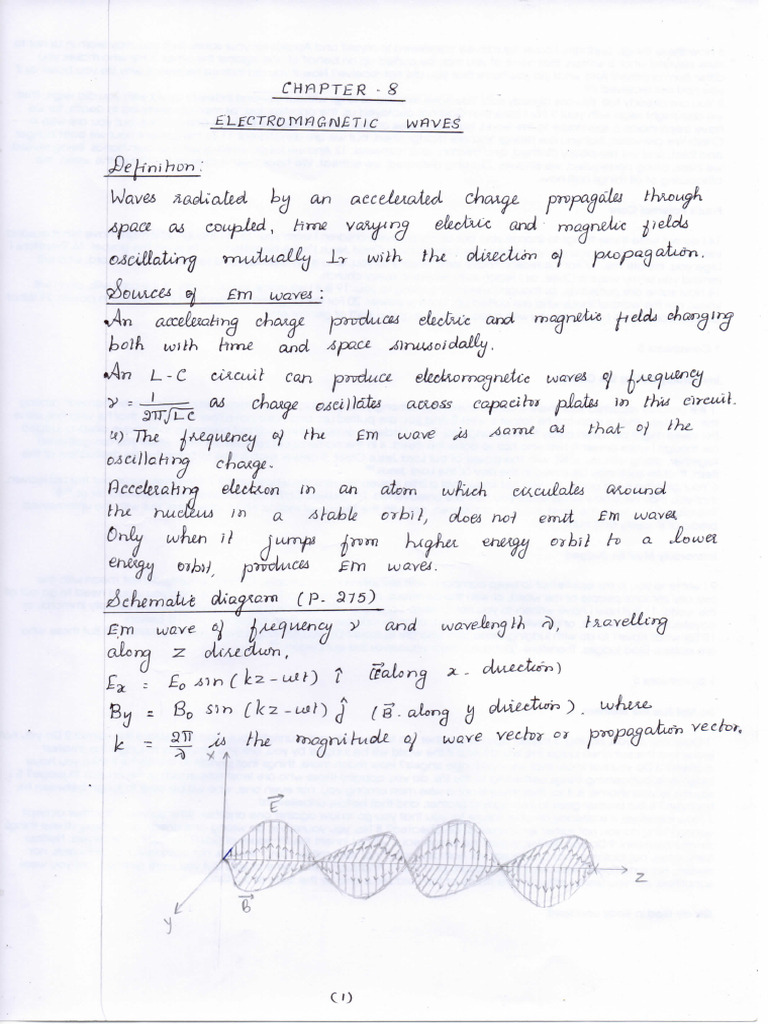 CHAPTER - 8
ELECTROMAGNETIC WAVES
Definition:
Waves radiated by an accelerated charge propagates through
space as coupled, time varying electric and magnetic fields
oscillating mutually ⊥r with the direction of propagation.
Sources of EM waves:
•An accelerating charge produces electric and magnetic fields changing
both with time and space sinusoidally.
•An L-C circuit can produce electromagnetic waves of frequency
ν = 1/2π√LC as charge oscillates across capacitor plates in this circuit.
4) The frequency of the EM wave is same as that of the
oscillating charge.
Accelerating electron in an atom which circulates around
the nucleus in a stable orbit, does not emit EM waves
Only when it jumps from higher energy orbit to a lower
energy orbit, produces EM waves.
Schematic diagram (P. 275)
EM wave of frequency ν and wavelength λ, travelling
along Z direction,
Ex = E0 sin(kz-ωt) î (E⃗ along x-direction)
By = B0 sin(kz-ωt) ĵ (B⃗ along y direction). where
k = 2π/λ is the magnitude of wave vector or propagation vector.
x
E⃗
z
B⃗
y
(1)